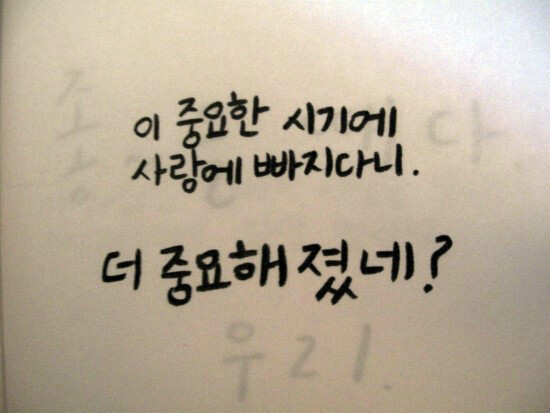 이 중요한 시기에
사랑에 빠지다니.
더 중요해졌네?
우리.